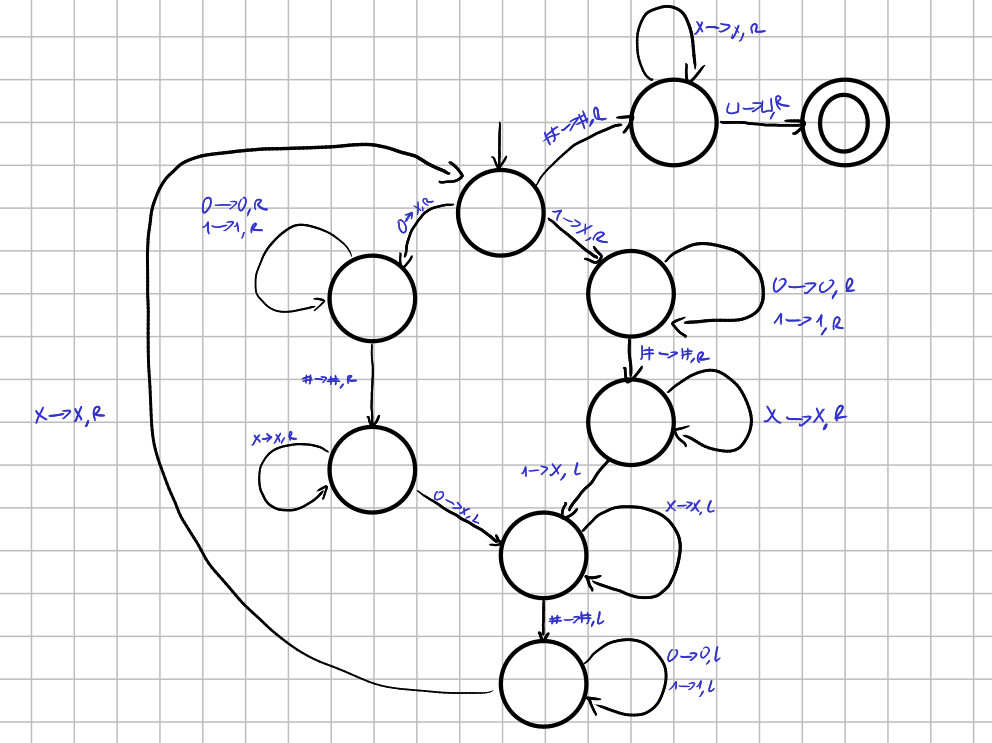 x→x, R
⊔→⊔, R
#→#, R
0→x, R
1→x, R
0→0, R
1→1, R
0→0, R
1→1, R
#→#, R
#→#, R
x→x, R
x→x, R
x→x, R
1→x, L
0→x, L
x→x, L
#→#, L
0→0, L
1→1, L